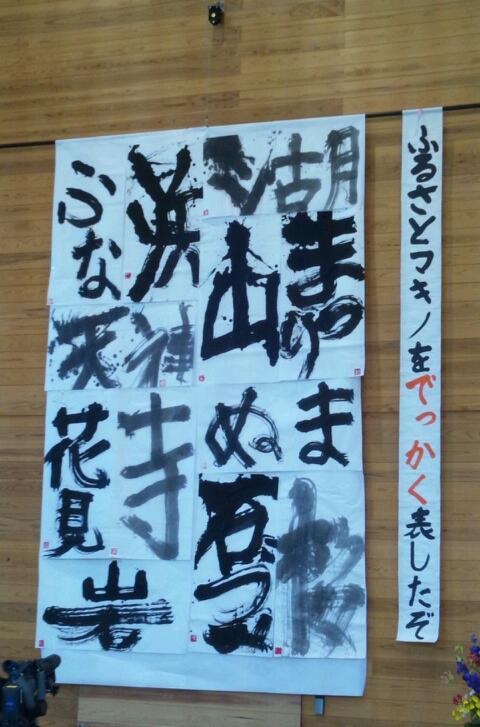 ふるさとマキノをでっかく表したぞ
湖
まつり
山
ぶな
天神
ま
ぬ
寺
花見
石
岩